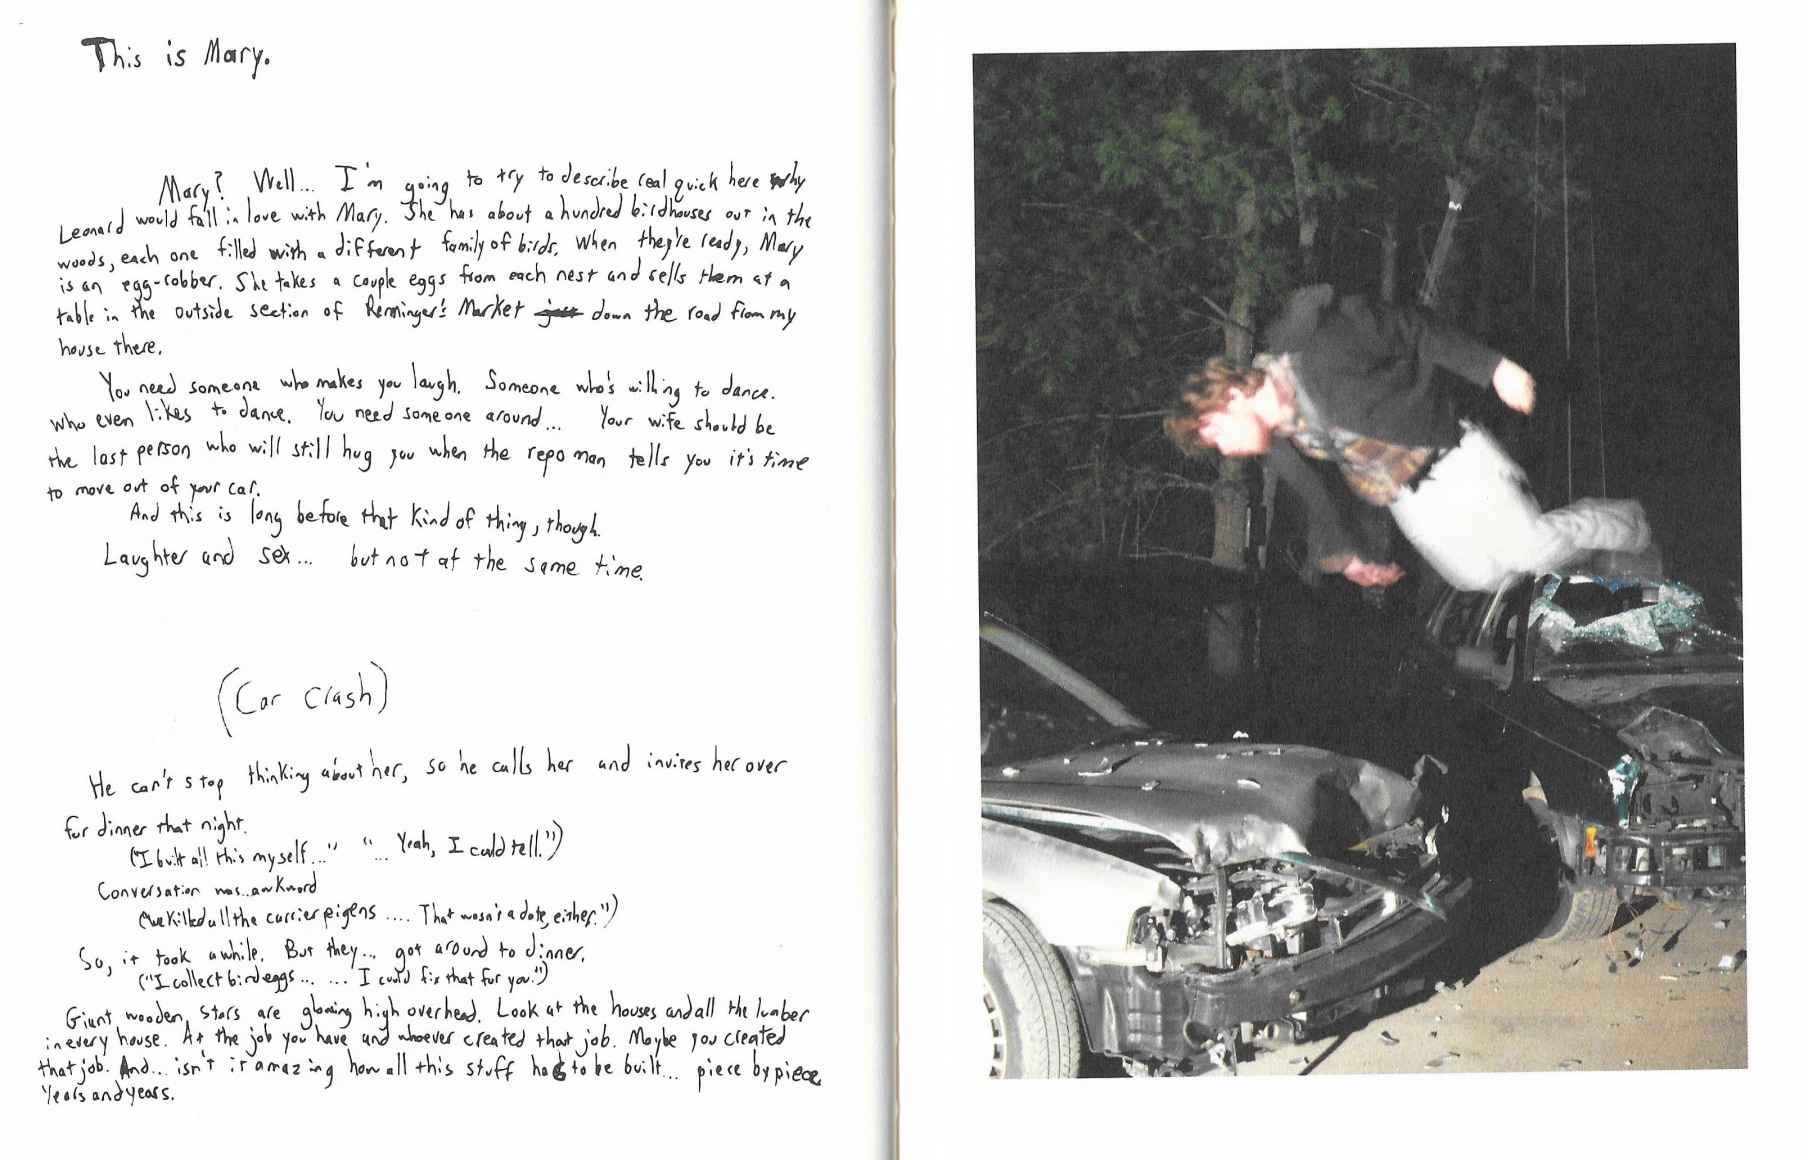 This is Mary.
Mary? Well... I'm going to try to describe real quick here why
Leonard would fall in love with Mary. She has about a hundred birdhouses out in the
woods, each one filled with a different family of birds. When they're ready, Mary
is an egg-robber. She takes a couple eggs from each nest and sells them at a
table in the outside section of Renninger's Market just down the road from my
house there.
You need someone who makes you laugh. Someone who's willing to dance.
Who even likes to dance. You need someone around... Your wife should be
the last person who will still hug you when the repo man tells you it's time
to move out of your car.
And this is long before that kind of thing, though.
Laughter and sex... but not at the same time.
(Car Crash)
He can't stop thinking about her, so he calls her and invites her over
for dinner that night.
("I built all this myself..." "... Yeah, I could tell.")
Conversation was..awkword
("We killed all the carrier pigens .... That wasn't a date, either.")
So, it took awhile. But they... got around to dinner.
("I collect bird eggs... ... I could fix that for you.")
Giant wooden stars are glowing high overhead. Look at the houses and all the lumber
in every house. At the job you have and whoever created that job. Maybe you created
that job. And... isn't it amazing how all this stuff has to be built... piece by piece
Years and years.